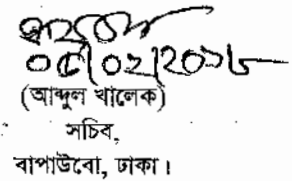 ০৫/০২/২০১৮
(আব্দুল খালেক)
সচিব,
বাপাউবো, ঢাকা।